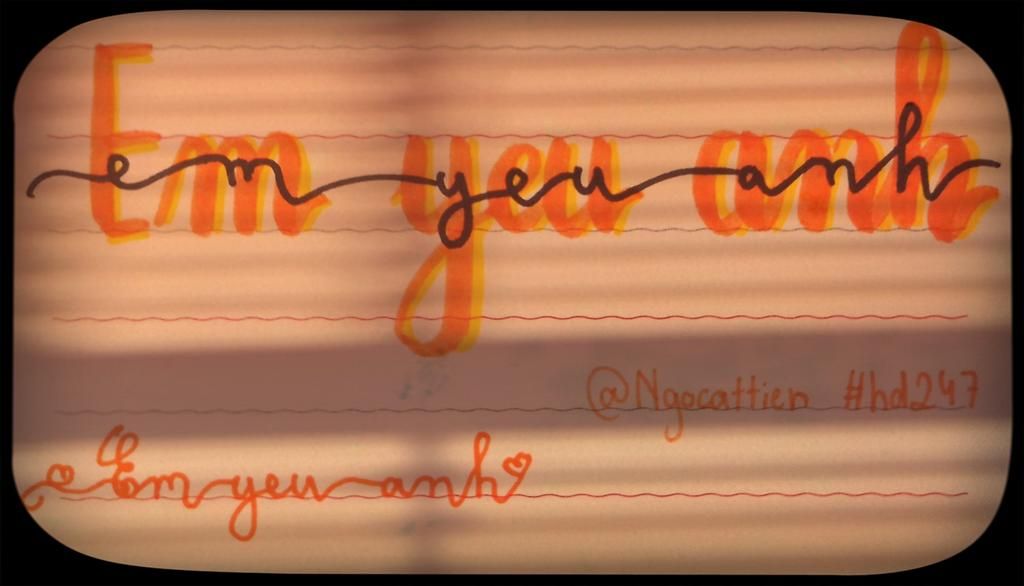 Em yeu anh
em yeu anh
@Ngocattien #hd247
Em yeu anh